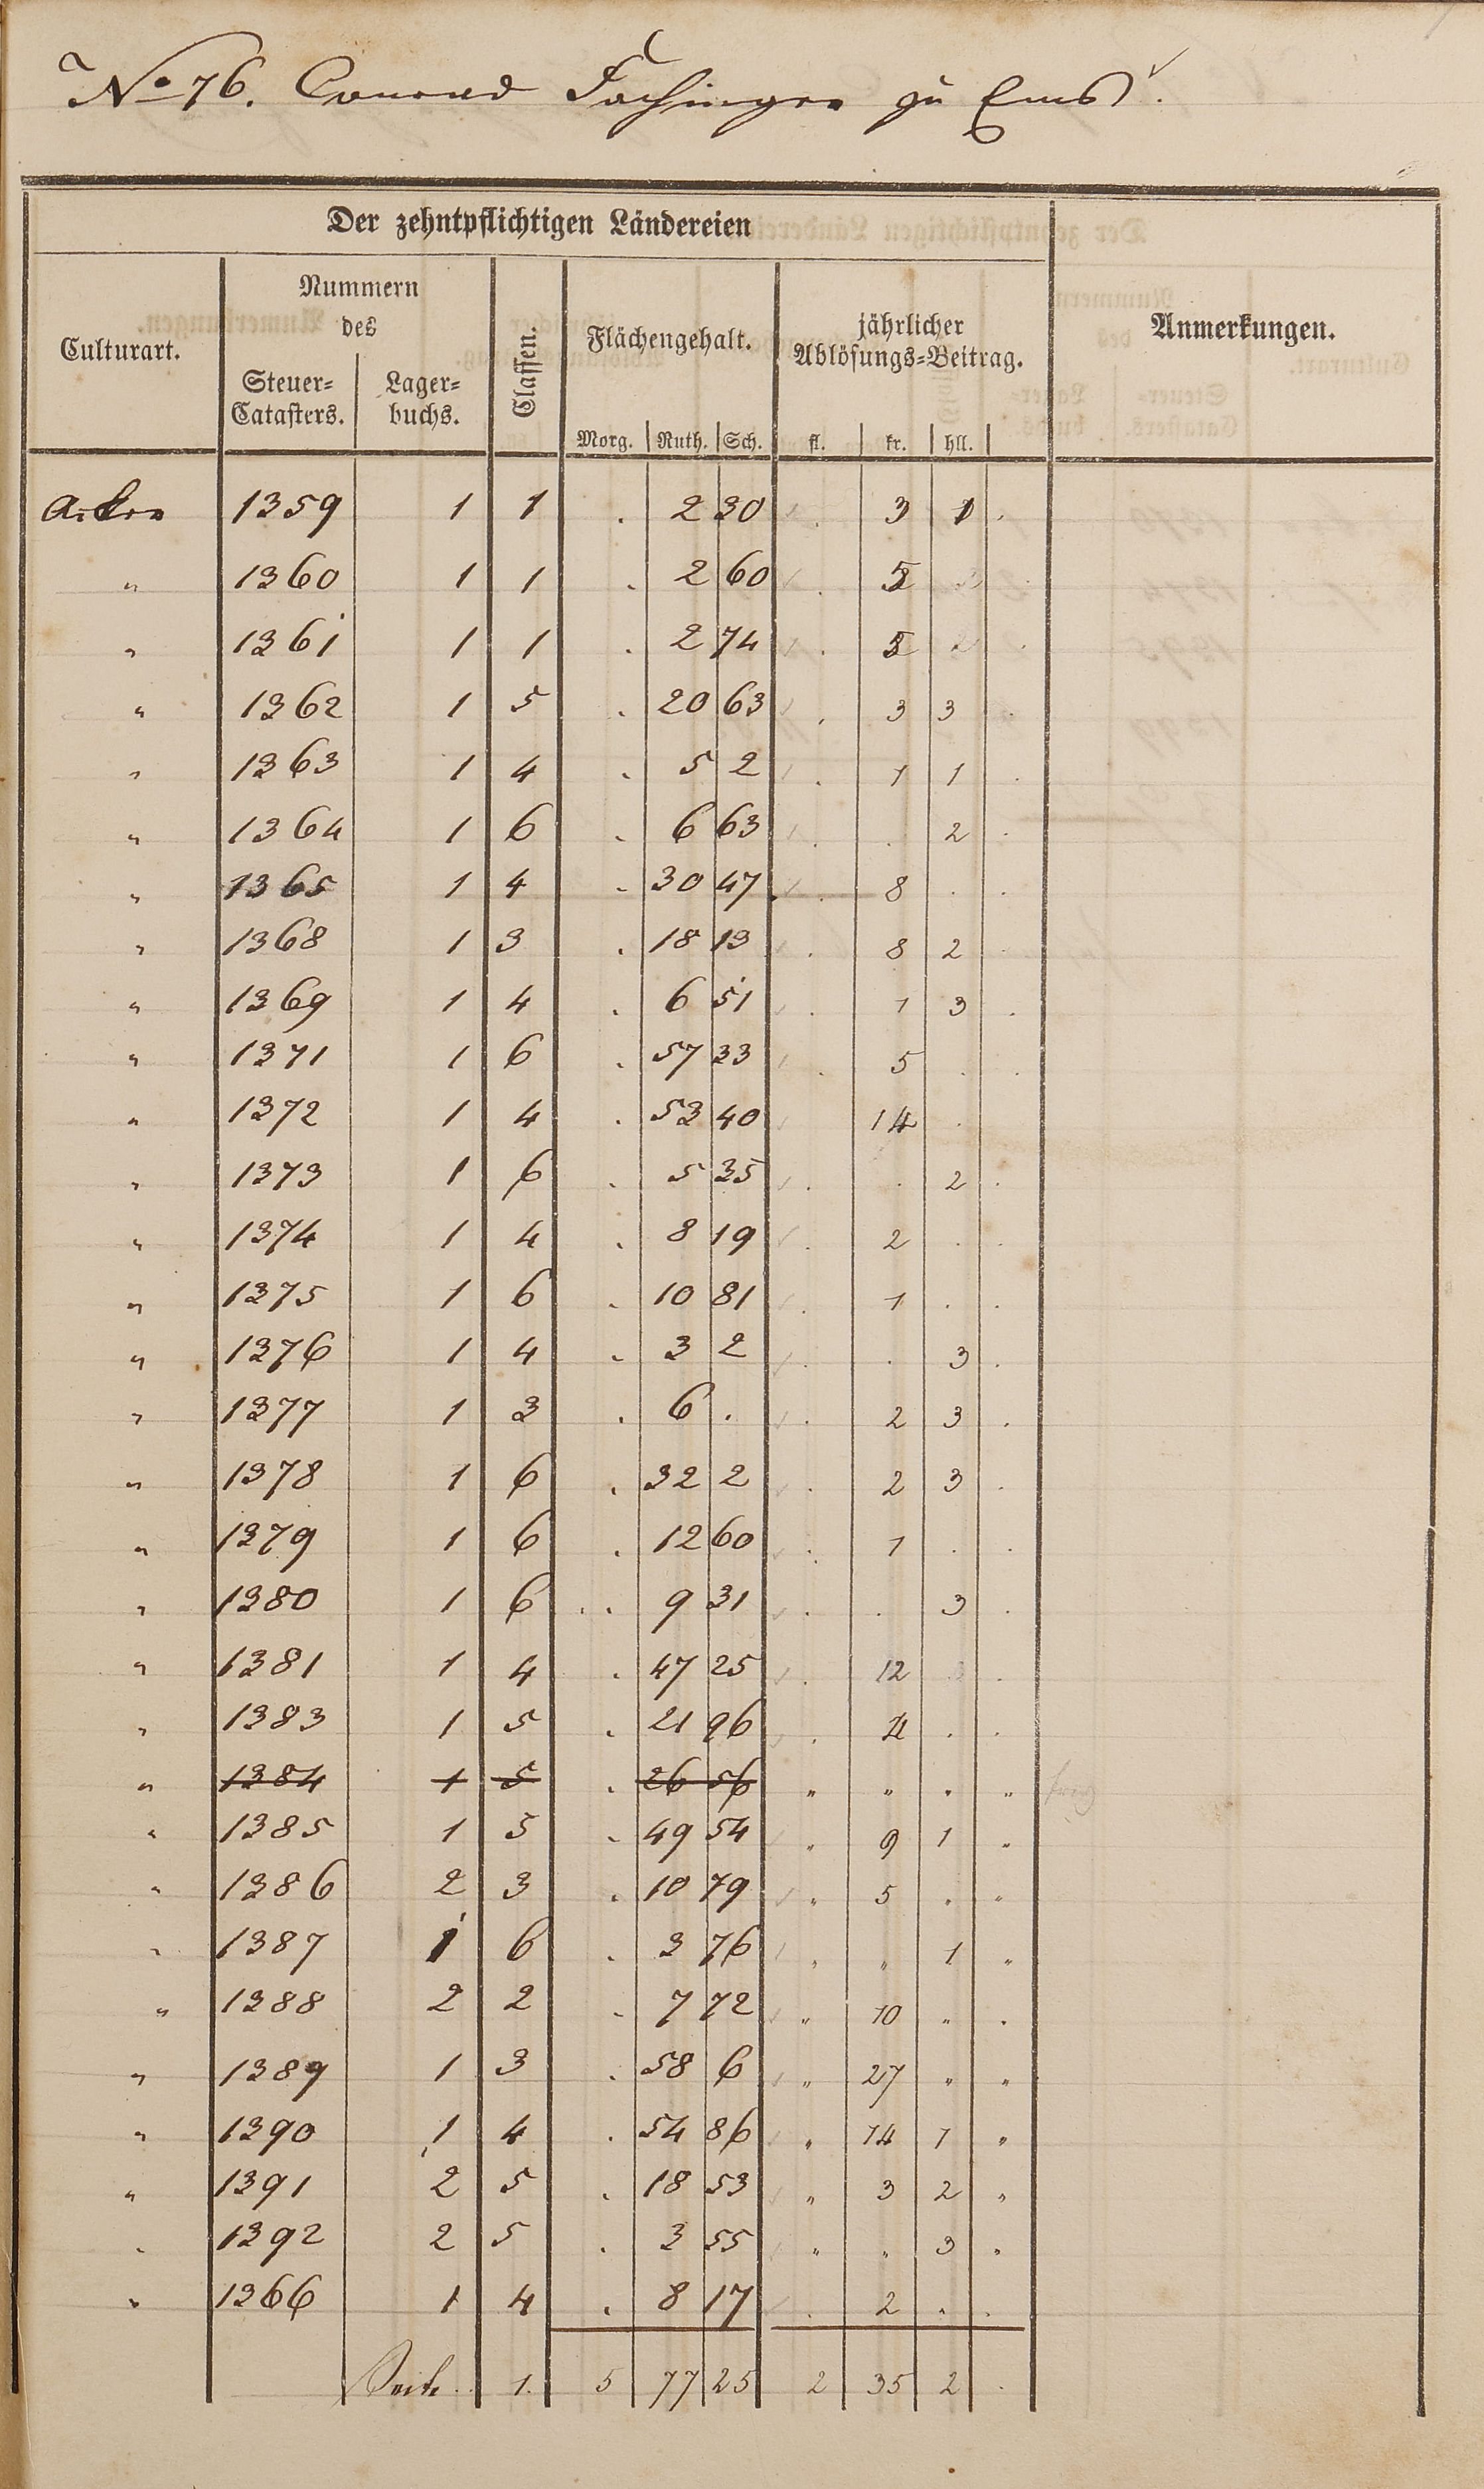 No 76. Conrad Fachinger zu Ems.
Der zehntpflichtigen Ländereien
Culturart. Nummern des Classen. Flächengehalt. jährlicher Ablösungs=Beitrag. Anmerkungen.
Steuer=Catasters. Lager=buchs.
Morg. Ruth. Sch. fl. kr. hll.
Acker 1359 1 1 . 2 30 . 3 1 .
" 1360 1 1 . 2 60 . 5 .
" 1361 1 1 . 2 74 . 5 .
" 1362 1 5 . 20 63 . 3 3 .
" 1363 1 4 . 5 2 . 1 1 .
" 1364 1 6 . 6 63 . . 2 .
" 1365 1 4 . 30 47 . 8 . .
" 1368 1 3 . 18 13 . 8 2 .
" 1369 1 4 . 6 51 . 1 3 .
" 1371 1 6 . 57 33 . 5 . .
" 1372 1 4 . 53 40 14 .
" 1373 1 6 . 5 35 . . 2 .
" 1374 1 4 . 8 19 . 2 . .
" 1375 1 6 . 10 81 . 1 . .
" 1376 1 4 . 3 2 . . 3 .
" 1377 1 3 . 6 . . 2 3 .
" 1378 1 6 . 32 2 . 2 3 .
" 1379 1 6 . 12 60 . 1 . .
" 1380 1 6 . 9 31 . . 3 .
" 1381 1 4 . 47 25 . 12 .
" 1383 1 5 . 21 96 . 4 . .
" 1384 1 5 . 26 56 " " " "
" 1385 1 5 . 49 54 " 9 1 "
" 1386 2 3 . 10 79 " 5 " "
" 1387 1 6 . 3 76 " " 1 "
" 1388 2 2 . 7 72 " 10 " "
" 1389 1 3 . 58 6 " 27 " "
" 1390 1 4 . 54 86 " 14 1 "
" 1391 2 5 . 18 53 " 3 2 "
" 1392 2 5 . 3 55 " " 3 "
" 1366 1 4 . 8 17 . 2 . .
Seite 1. 5 77 25 2 35 2 .